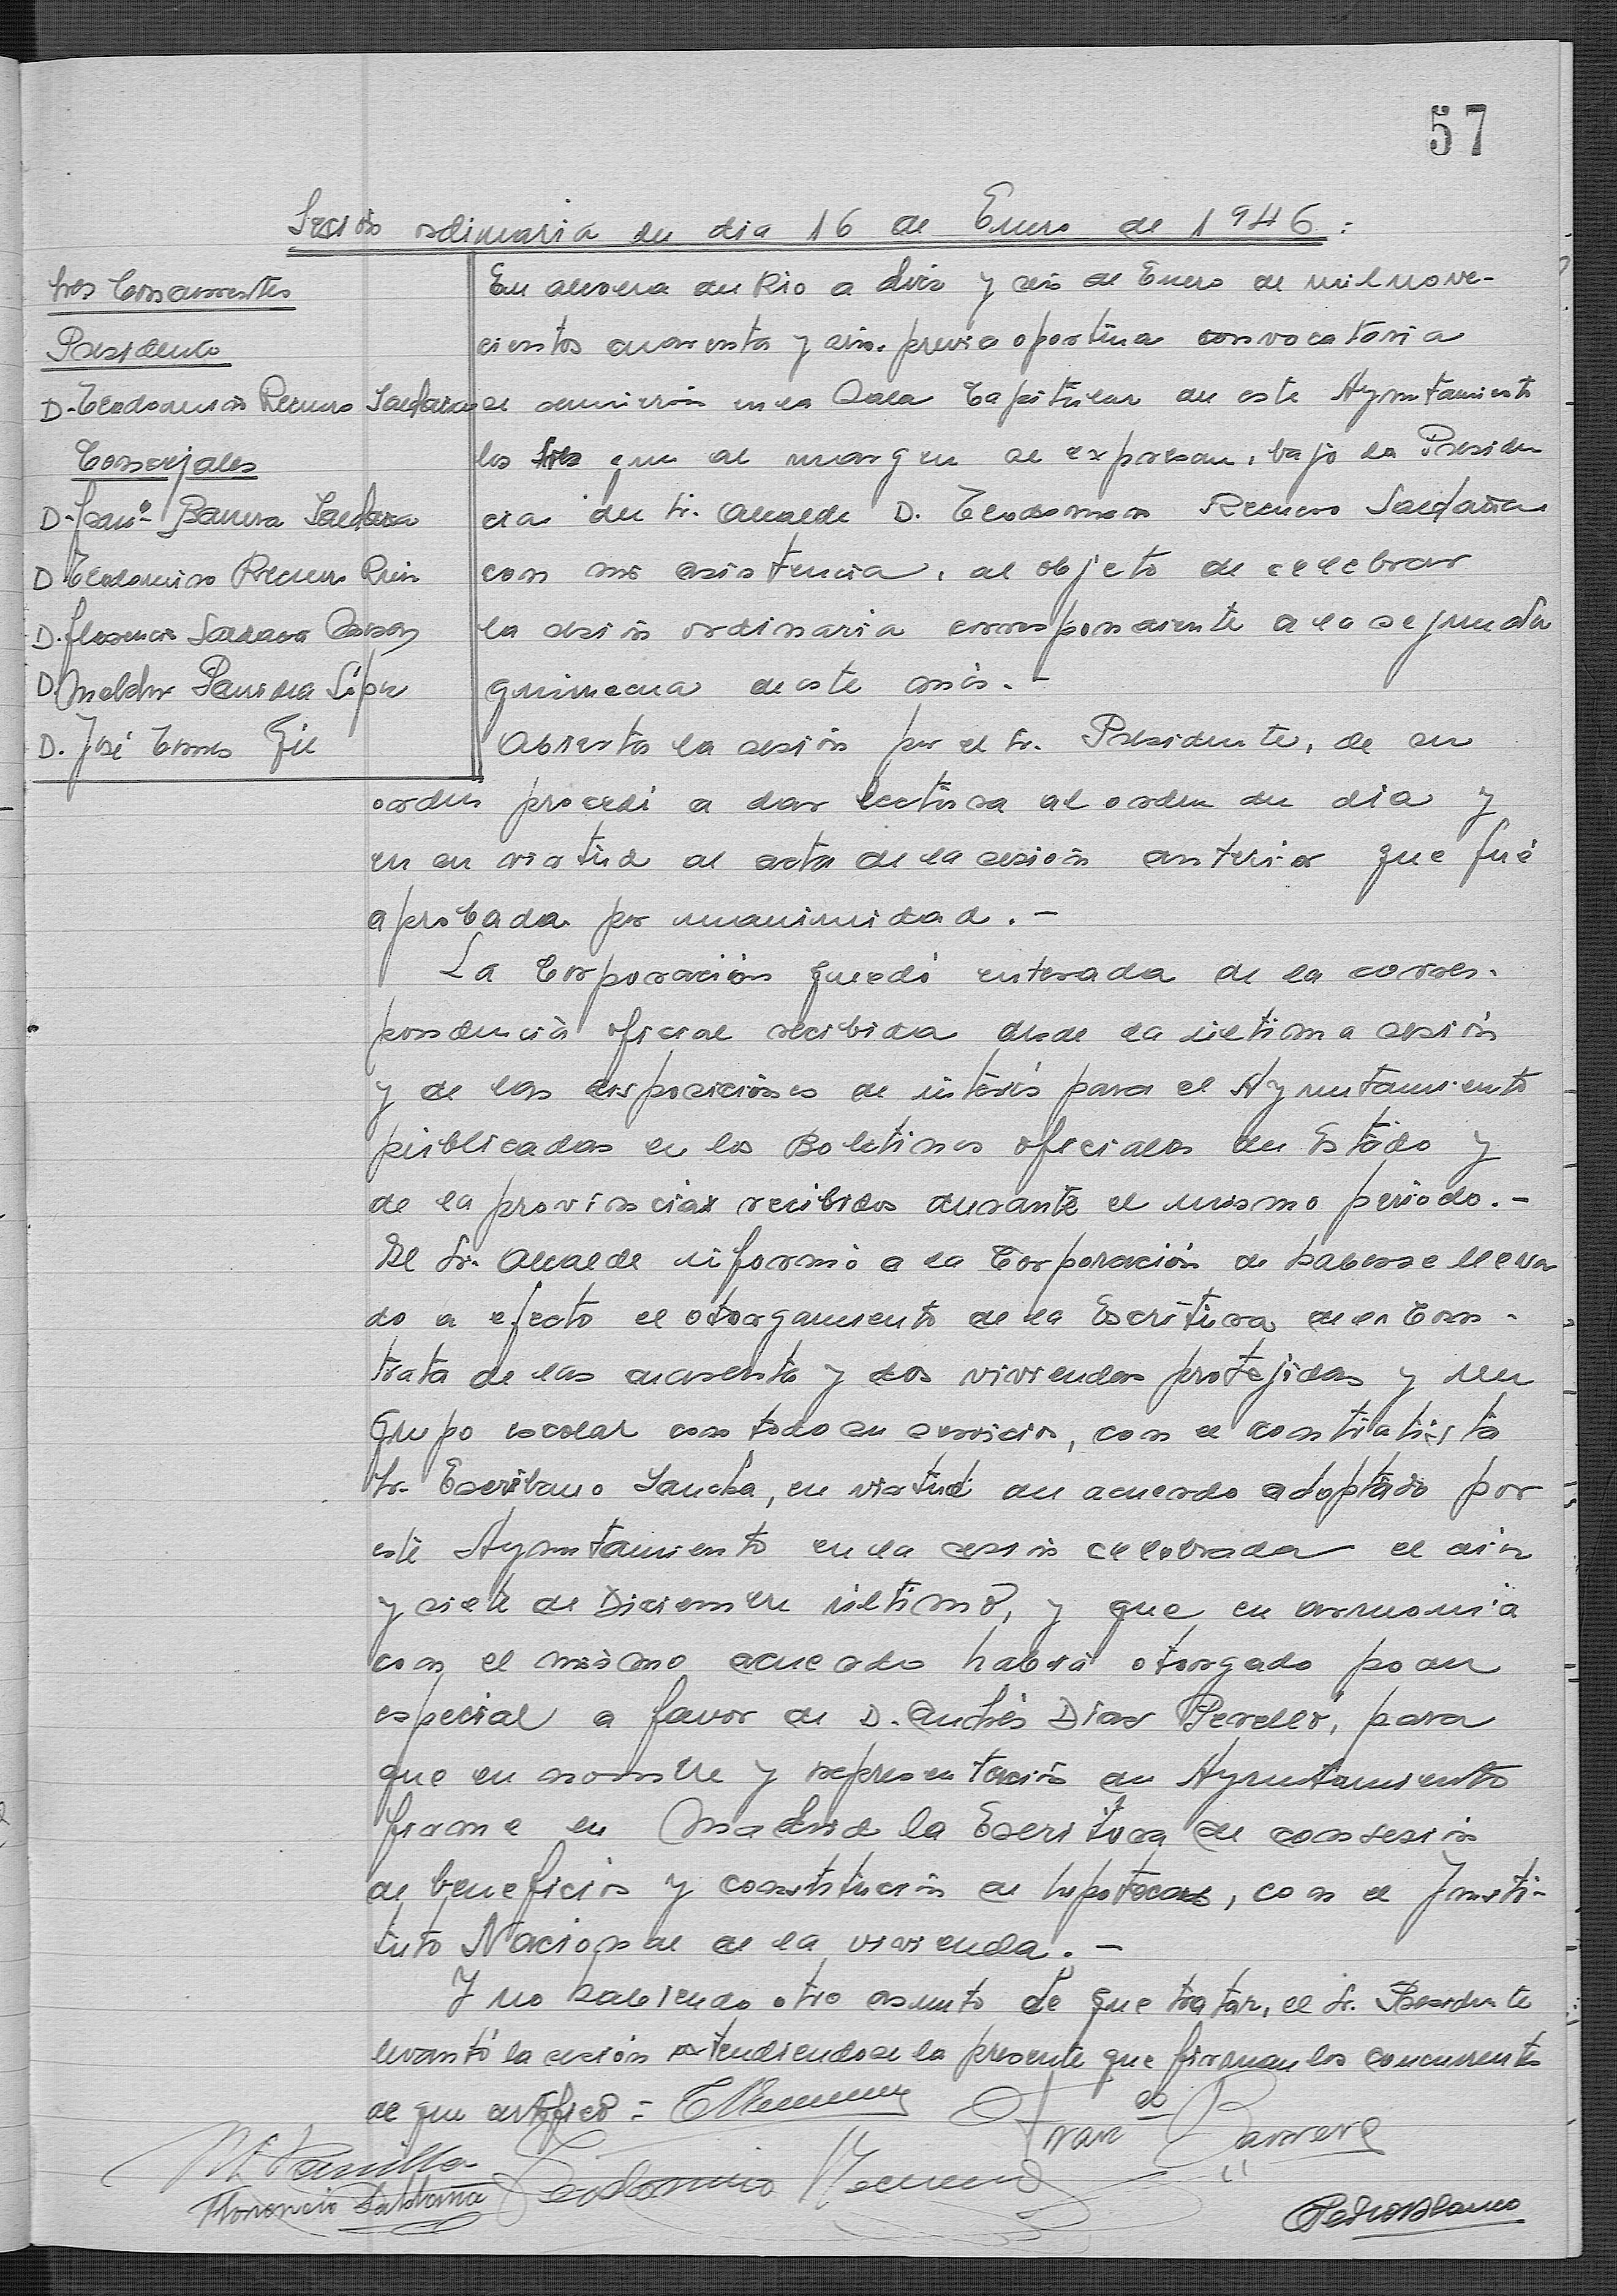 57
Sesión ordinaria del dia 16 de Enero de 1946:
Sres Concurrentes
Presidente
D. Teodomiro Recuero Saldaña
Concejales
D. Franco Barrera Saldaña
D Teodomiro Recuero Ruiz
D. Florencio Saldaña
D. Melchor Panilla López
D. José Torres Gil
En Alcolea del Rio a diez y seis de Enero de mil nove-
cientos cuarenta y seis, previa oportuna convocatoria
se reunieron en la Sala Capitular de este Ayuntamiento
los Sres que al margen se expresan, bajo la Presiden
cia del Sr. Alcalde D. Teodomiro Recuero Saldaña
con mi asistencia, al objeto de celebrar
la sesión ordinaria correspondiente a la segunda
quincena de este mes.-
Abierta la sesión por el Sr. Presidente, de su
orden procedí a dar lectura al orden del dia y
en su virtud al acta de la sesión anterior que fué
aprobada por unanimidad.-
La Corporación quedó enterada de la corres-
pondencia oficial recibida desde la última sesión
y de las disposiciones de interés para el Ayuntamiento
publicadas en los Boletines oficiales del Estado y
de la provincia recibidos durante el mismo periodo.-
El Sr. Alcalde informó a la Corporación de haberse lleva
do a efecto el otorgamiento de la Escritura de la Con-
trata de las cuarenta y dos viviendas protejidas y un
Grupo escolar con todo su servicio, con el contratista
Sr. Escribano Sancha, en virtud del acuerdo adoptado por
este Ayuntamiento en la sesión celebrada el diez
y siete de Diciembre último, y que en armonia
con el mismo acuerdo habia otorgado poder
especial a favor de D. Andrés Diaz Perelló, para
que en nombre y representación del Ayuntamiento
firme en Madrid la Escritura de consesión
de beneficios y constitución de hipotecas, con el Insti-
tuto Nacional de la vivienda.-
Y no habiendo otro asunto de que tratar, el Sr. Presidente
levantó la sesión extendiendose la presente que firman los concurrentes
de que certifico = T Recuero Franco Barrera
M Panilla Teodomiro Recuero
Florencio Saldaña
Pedro Blanco